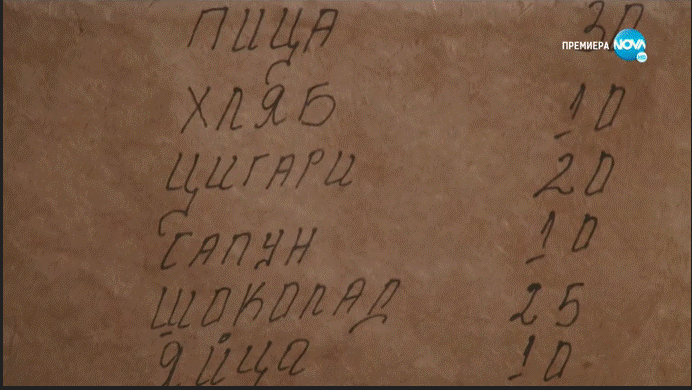 ПИЦА 30
ПРЕМИЕРА NOVA HD
ХЛЯБ 10
ЦИГАРИ 20
САПУН 10
ШОКОЛАД 25
ЯЙЦА 10